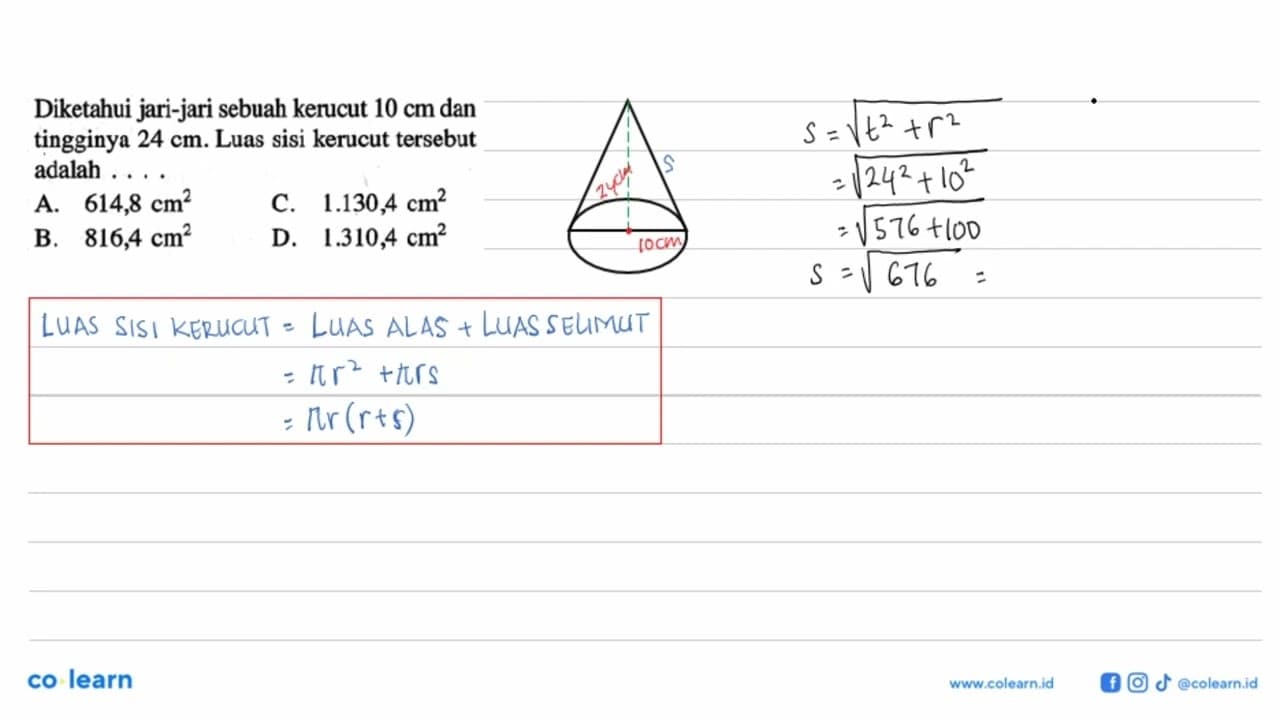 Diketahui jari-jari sebuah kerucut 10 cm dan
tingginya 24 cm. Luas sisi kerucut tersebut
adalah . . . .
A. 614,8 cm² C. 1.130,4 cm²
B. 816,4 cm² D. 1.310,4 cm²
24cm
s
10cm
s = √t² + r²
= √24² + 10²
= √576 + 100
s = √676 =
LUAS SISI KERUCUT = LUAS ALAS + LUAS SELIMUT
= πr² + πrs
= πr (r+s)
co learn
www.colearn.id
@colearn.id